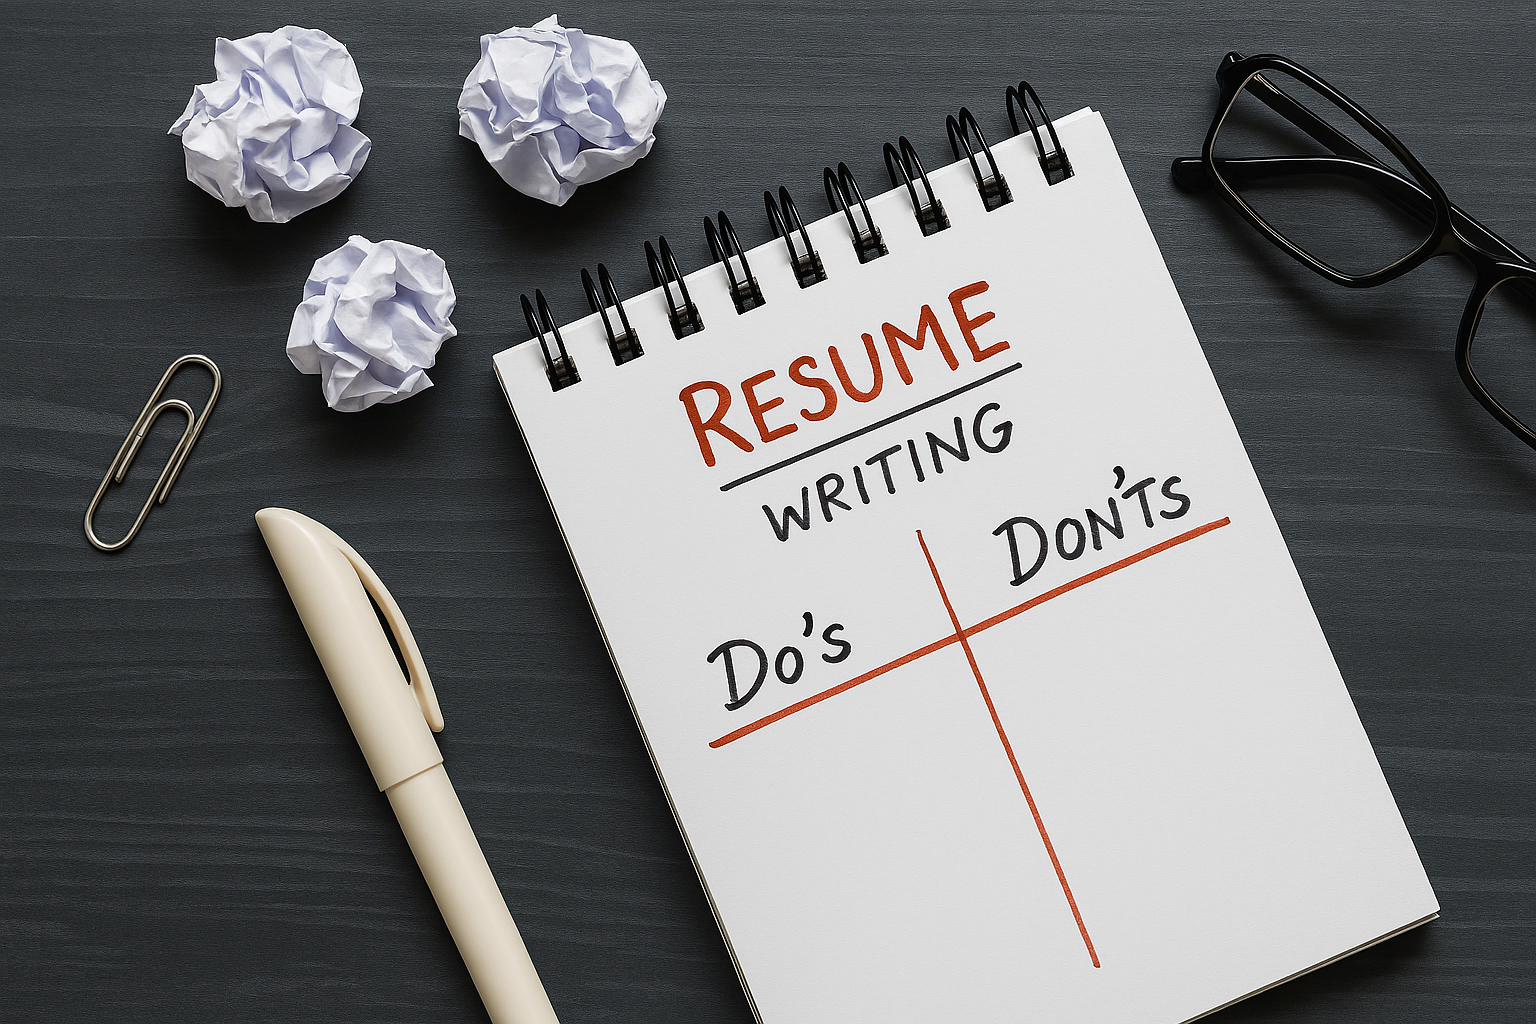 RESUME
WRITING
Do's Don'ts